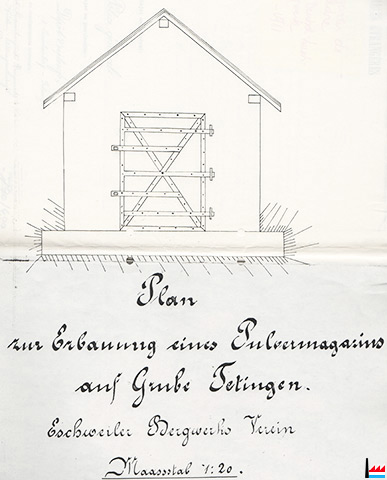 Plan
zur Erbauung eines Pulvermagazins
auf Grube Tetingen.
Eschweiler Bergwerks Verein
Maassstal 1:20.